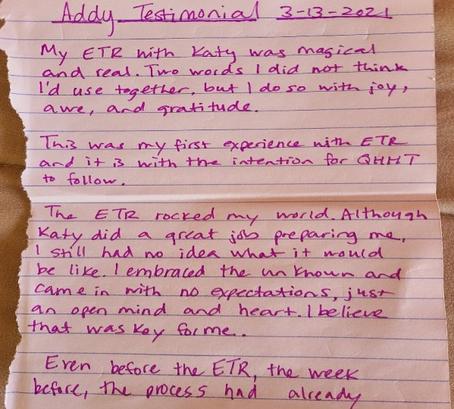 Addy Testimonial 3-13-2021
My ETR with Katy was magical
and real. Two words I did not think
I'd use together, but I do so with joy,
awe, and gratitude.
This was my first experience with ETR
and it is with the intention for QHHT
to follow.
The ETR rocked my world. Although
Katy did a great job preparing me,
I still had no idea what it would
be like. I embraced the unknown and
came in with no expectations, just
an open mind and heart. I believe
that was key for me..
Even before the ETR, the week
before, the process had already